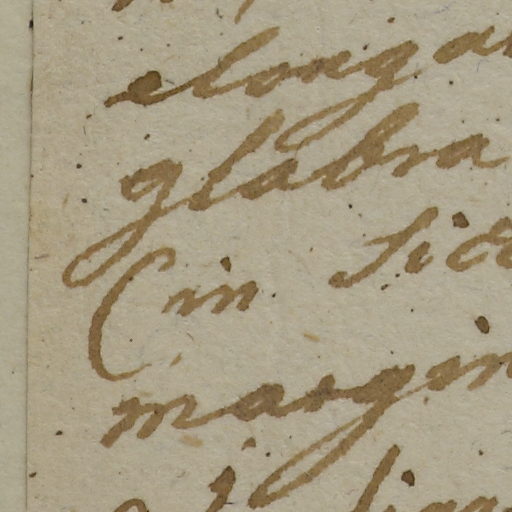 elonga
glabra
(in sic
margin